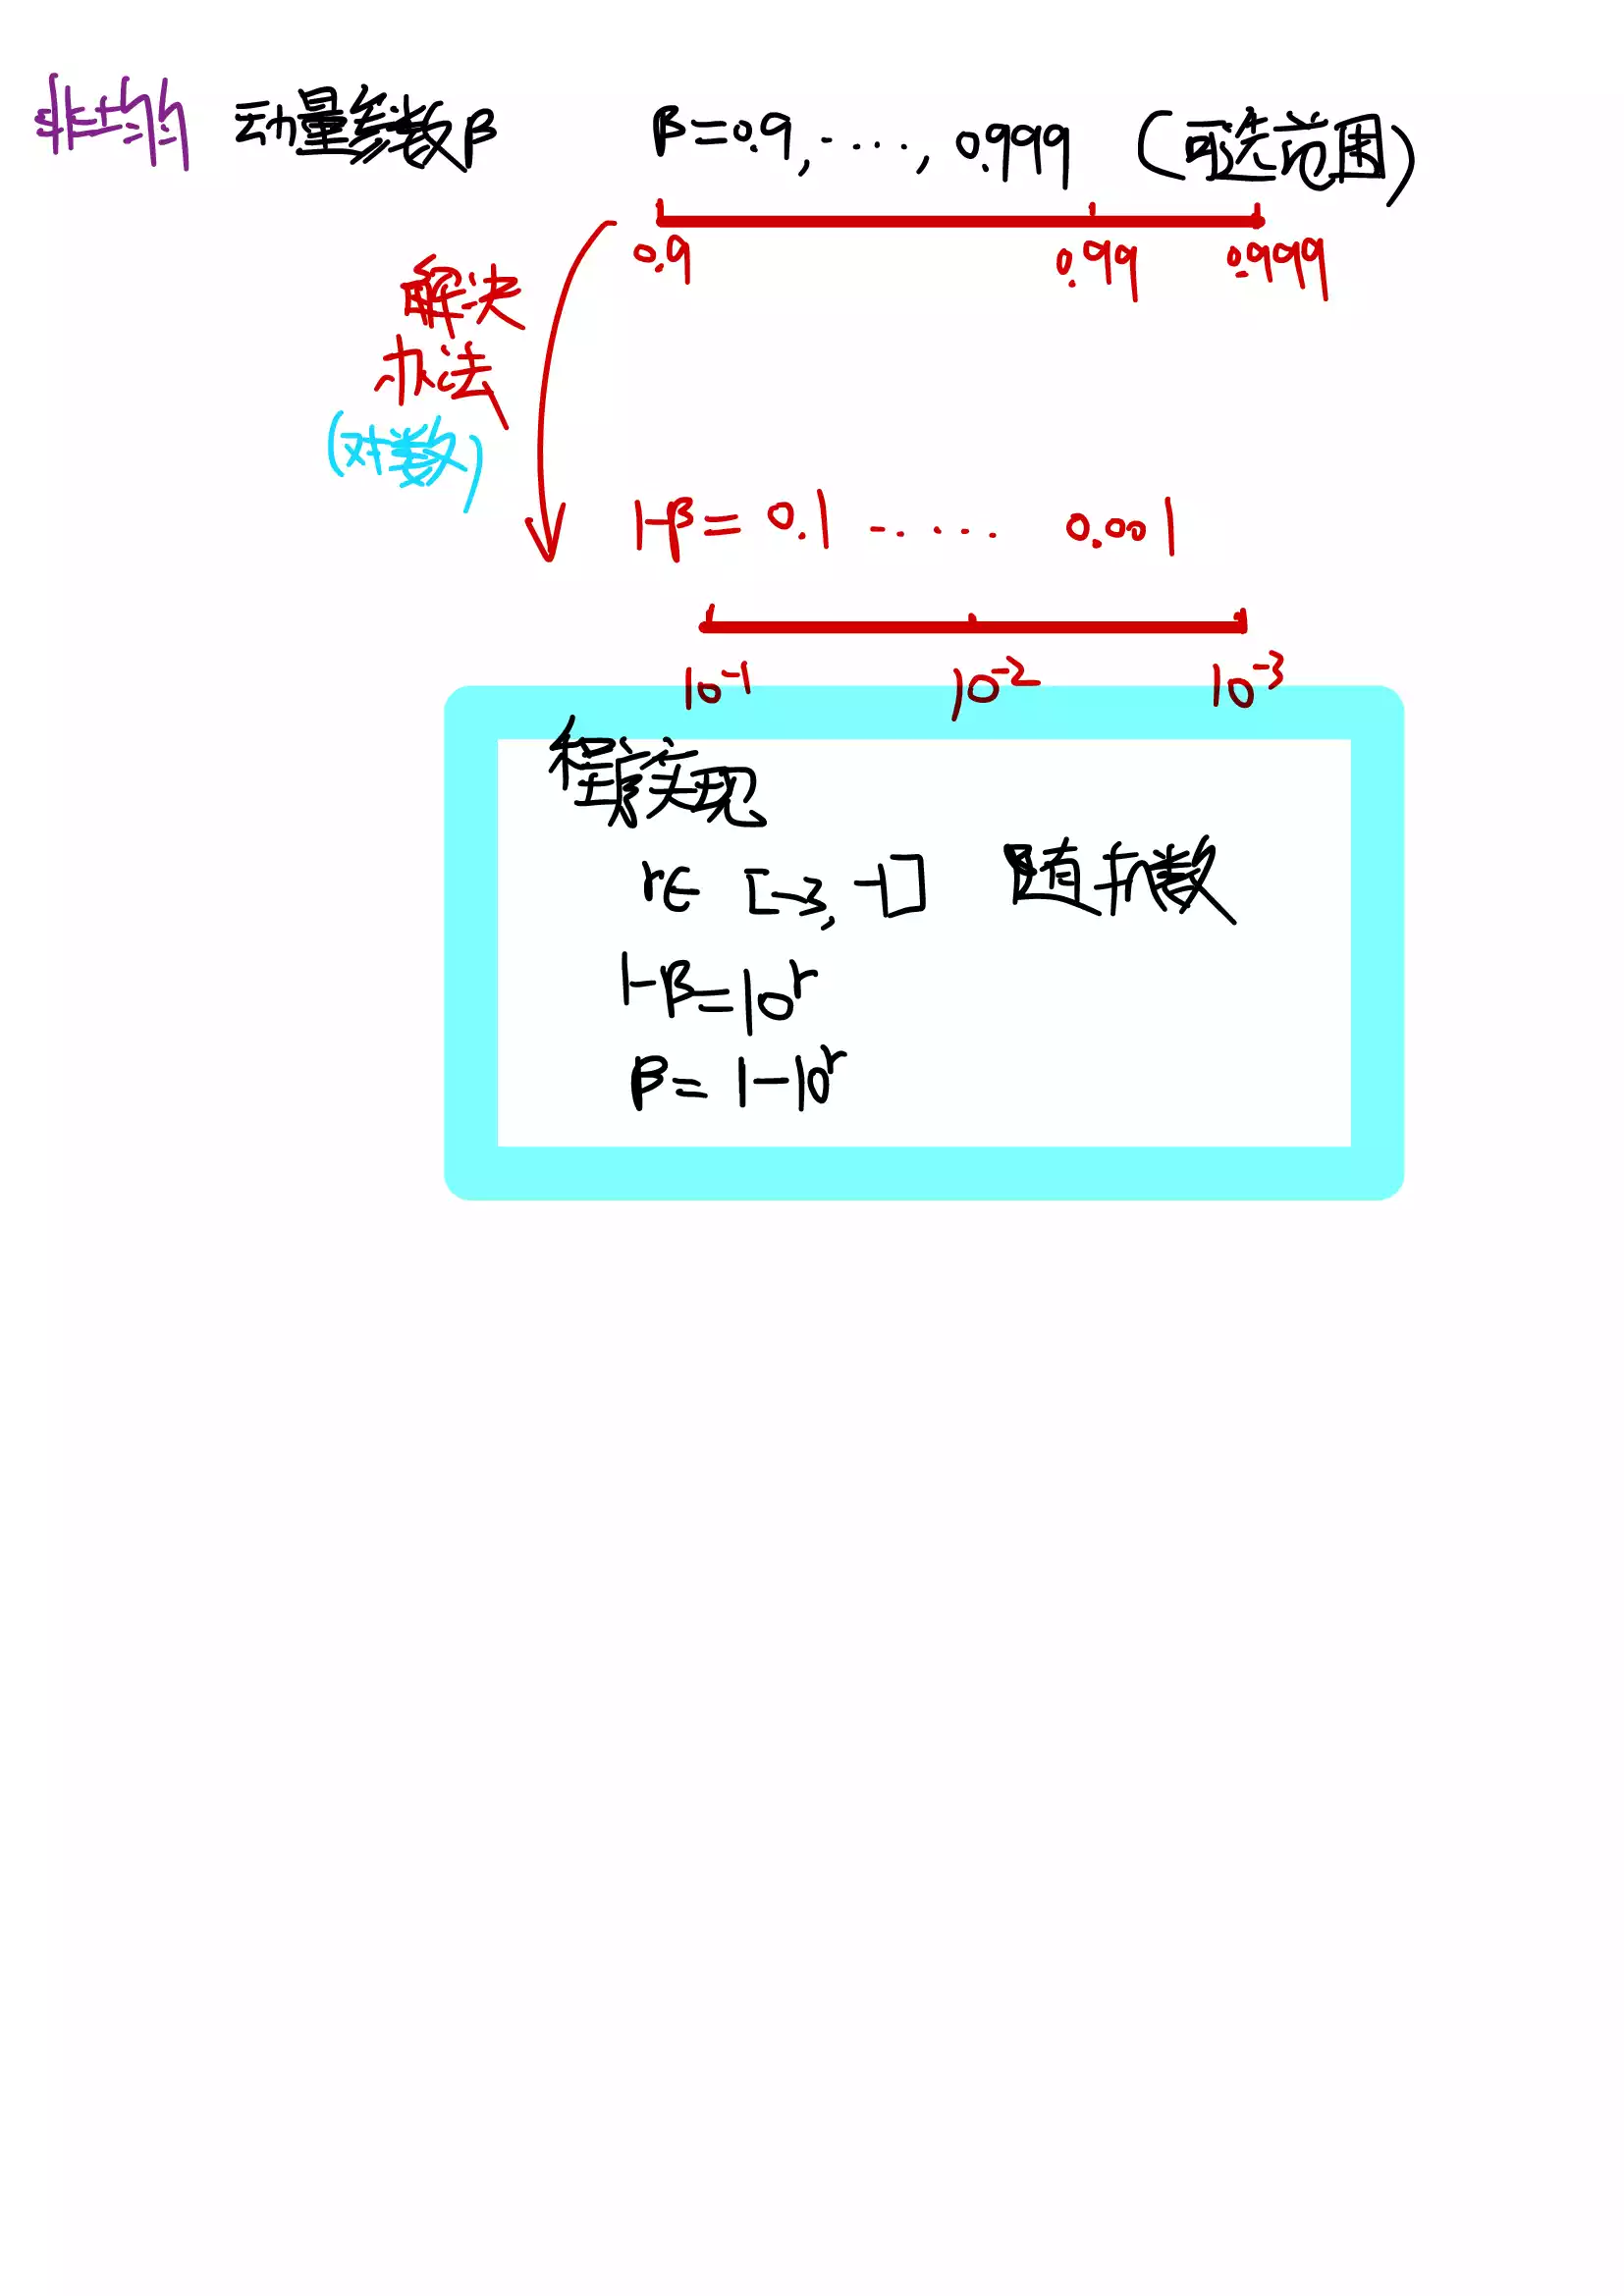 非均匀 动量参数β β=0.9, ‑‑‑‑, 0.999 (可选范围)
0.9 0.99 0.999
解决
办法
(对数)
1-β= 0.1 ‑‑‑‑‑ 0.001
10⁻¹ 10⁻² 10⁻³
程序实现
r∈ [-3, -1] 随机数
1-β=10ʳ
β= 1-10ʳ